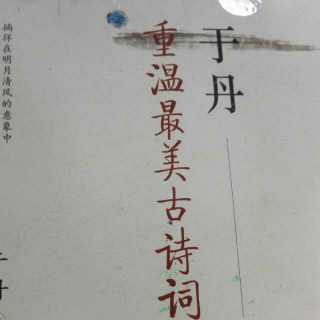 于丹
重温最美古诗词
徜徉在明月清风的意象中
于丹